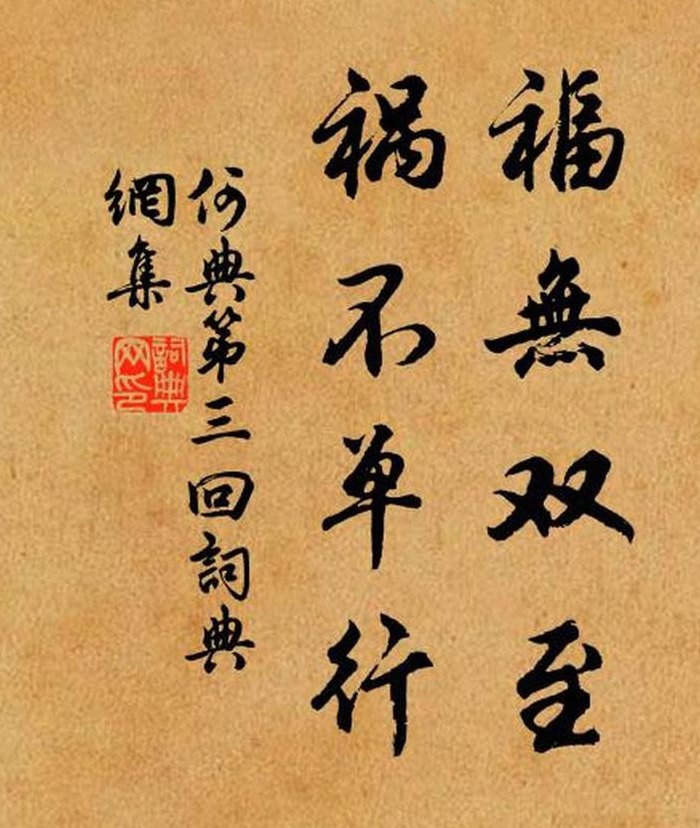 福無双至
祸不单行
何典第三回詞典
網集
詞典
网印